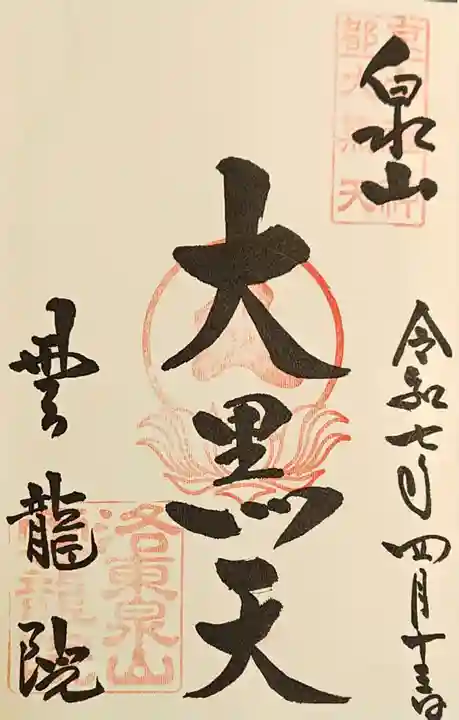 泉山
令和七年四月十三日
大黒天
雲龍院
都大黒天
洛東泉山